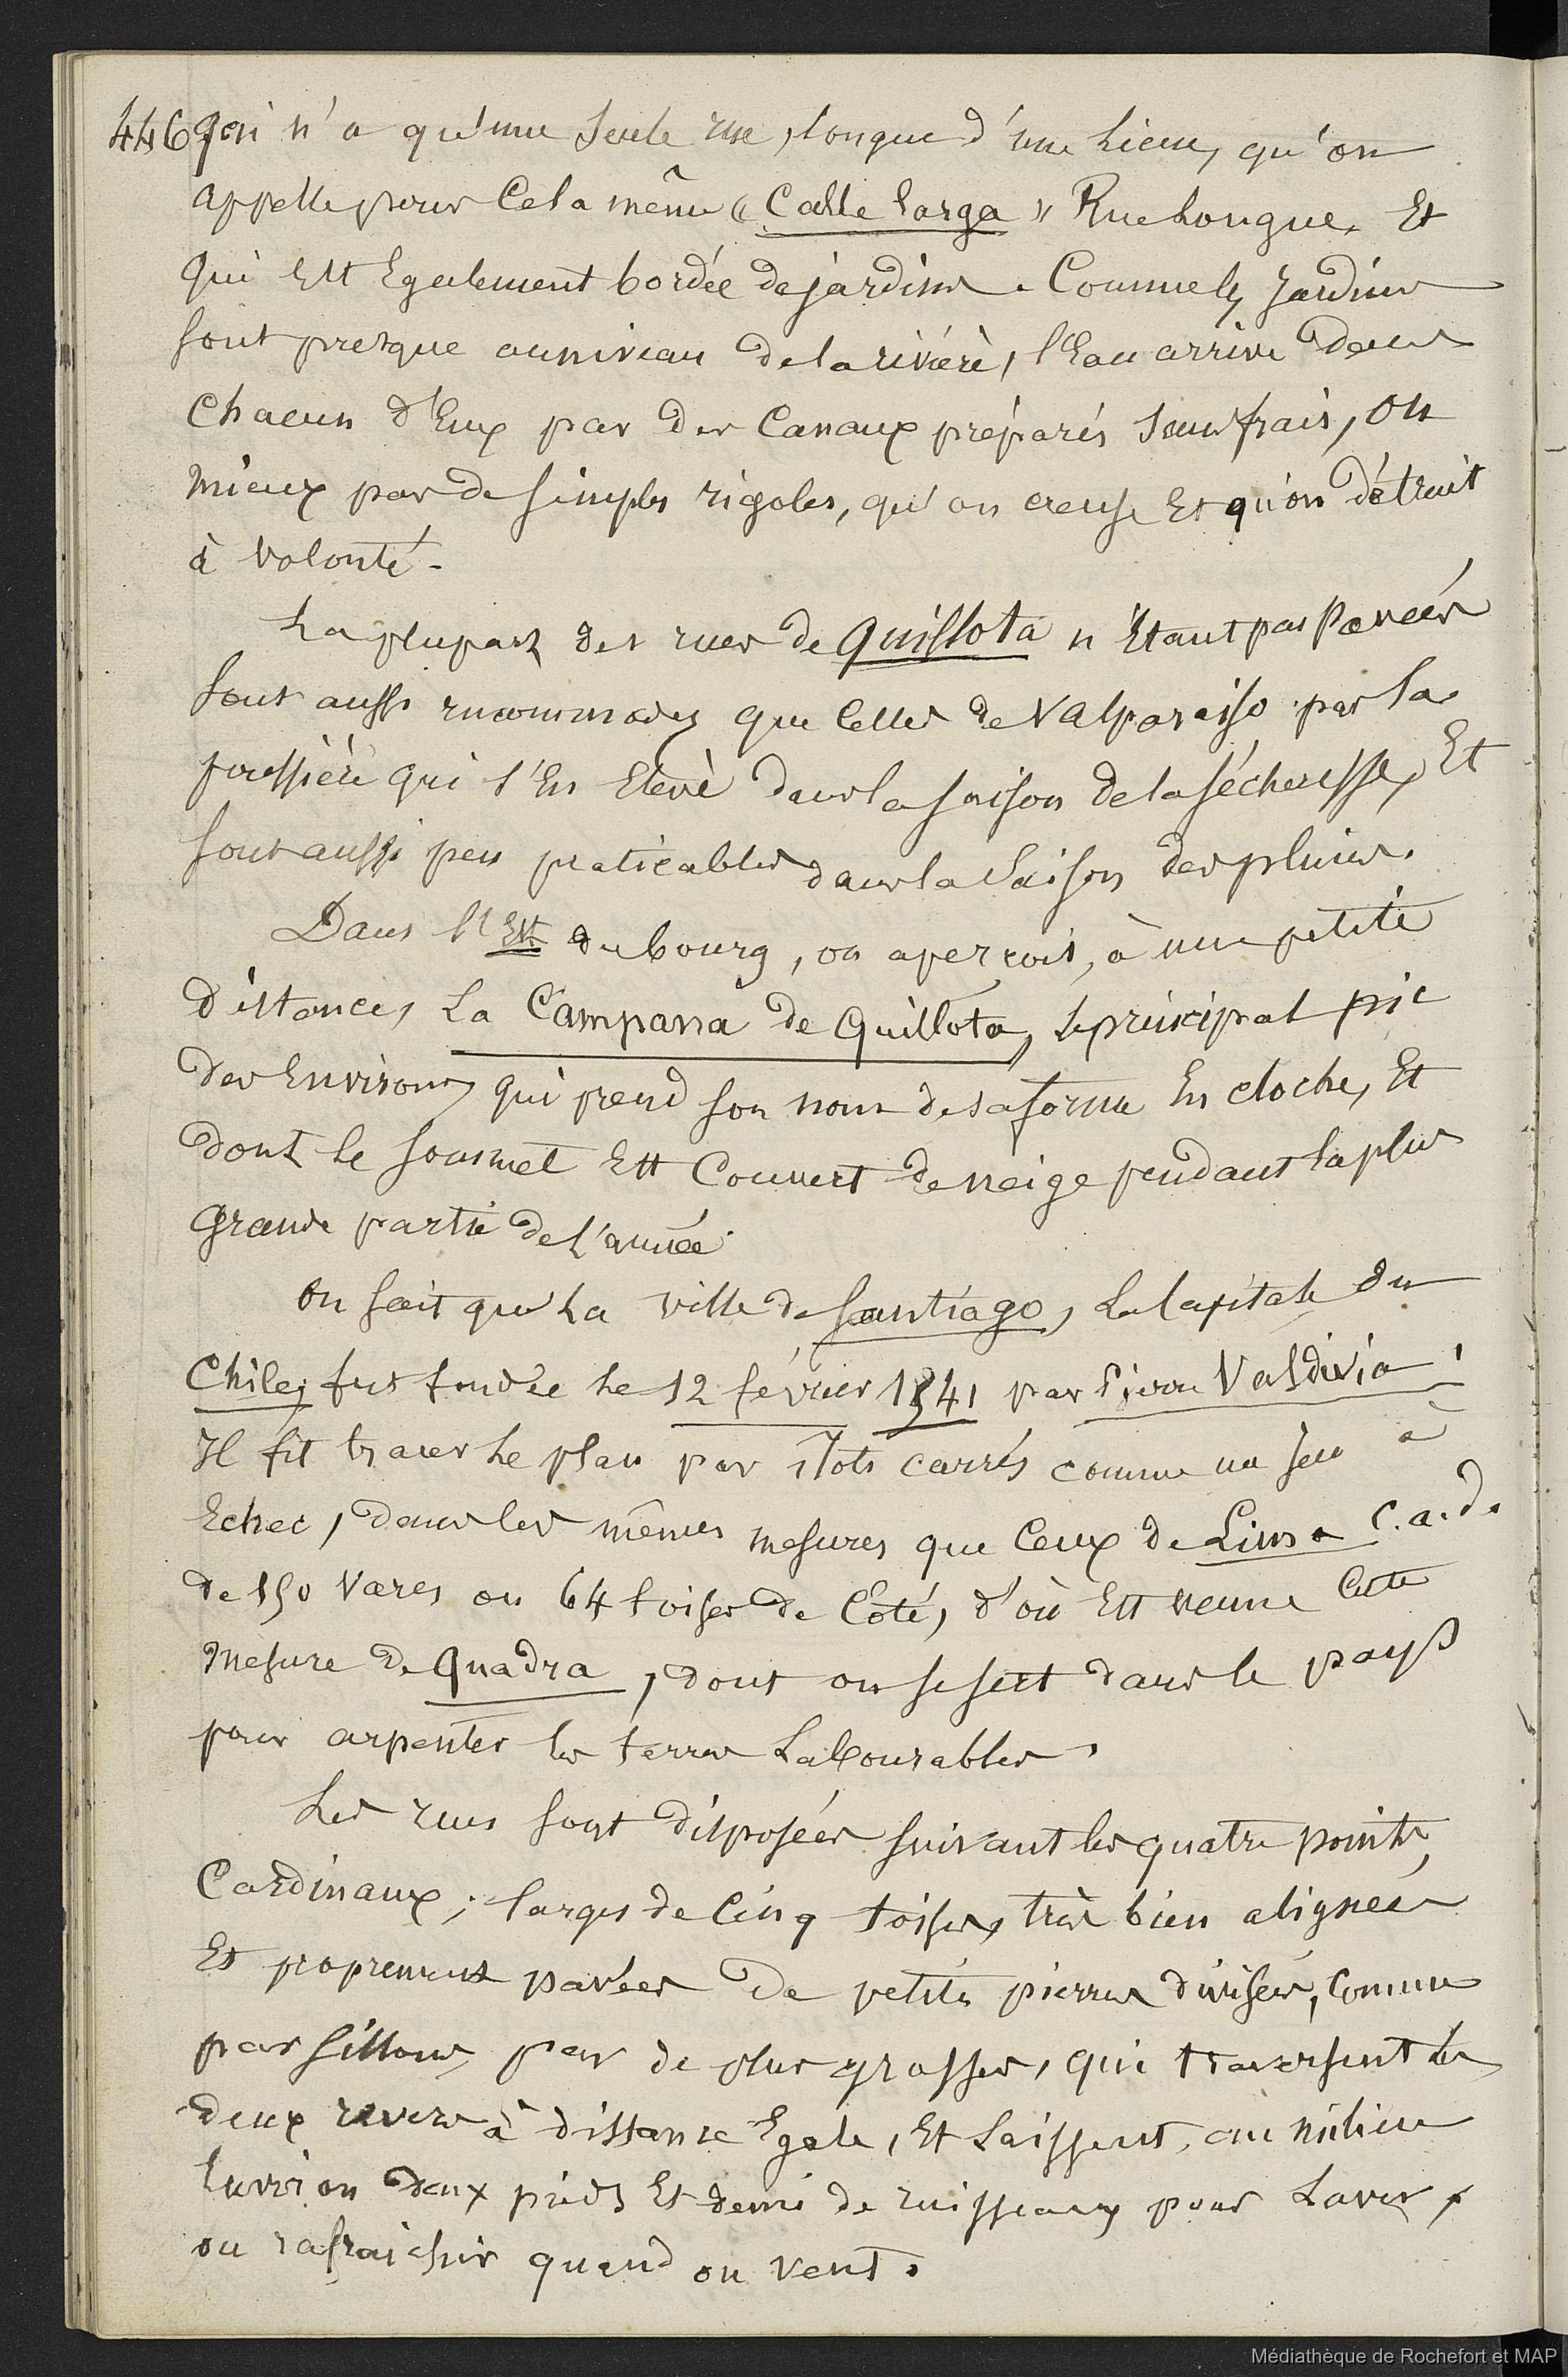 446 qui n'a qu'une seule rue, longue d'une lieue, qu'on
appelle pour cela même « Calle larga » Rue longue, Et
qui Est Egalement bordée de jardins. Comme les jardins
sont presque au niveau de la rivière, l'Eau arrive dans
chacun d'Eux par des Canaux préparés sans frais, ou
mieux par de simples rigoles, qu'on creuse Et qu'on détruit
à volonté.
La plupart des rues de Quillota n'Etant pas Pavées
sont aussi incommodes que celles de Valparaiso par la
poussière qui s'En Elevè dans la saison de la sécheresse, Et
sont aussi peu praticables dans la saison des pluies.
Dans l'Est du bourg, on aperçoit, à une petite
distance, La Campana de Quillota, le principal pic
des Environs, qui prend son nom de sa forme En cloche, Et
dont le sommet Est Couvert de neige pendant la plus
grande partie de l'année.
On sait que La ville de Santiago, La Capitale du
Chile, fut fondée le 12 février 1541 par Pierre Valdivia !
Il fit tracer le plan par ilots carrés comme un jeu à
Echec, dans les mêmes mesures que Ceux de Lima c.a.d.
de 150 Vares ou 64 toises de Côté, d'où Est venue Cette
mesure de Quadra, dont on se sert dans le pays
pour arpenter les terres Labourables.
Les rues sont disposées suivant les quatre points
Cardinaux ; larges de Cinq toises, très bien alignées
Et proprement pavées de petites pierres divisées, Comme
par sillons, par de plus grosses, qui traversent les
deux revers à distance Egale, Et Laissent, au milieu
Environ deux pieds Et demi de ruisseaux pour Laver,
ou rafraichir quand on veut.
Médiathèque de Rochefort et MAP